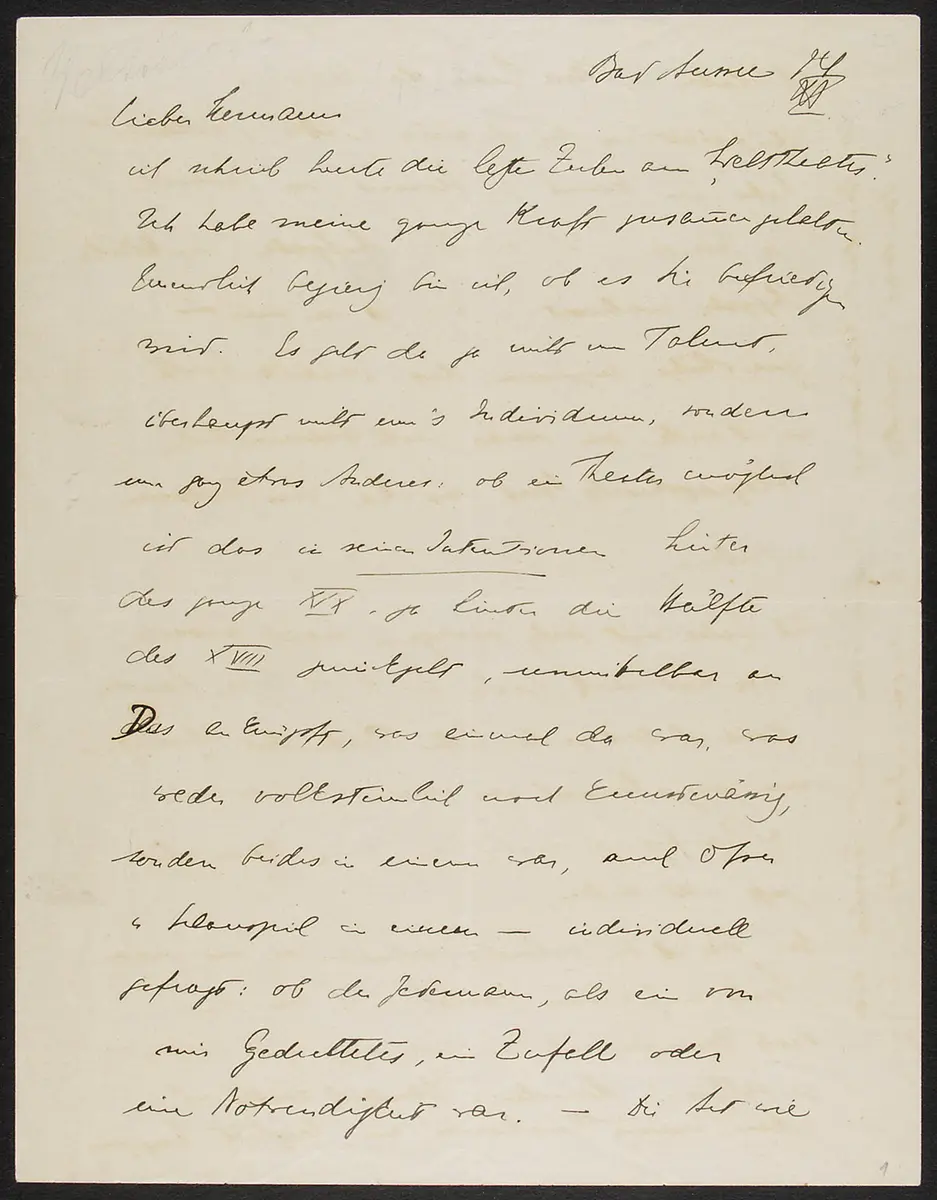 Bad Aussee 14/XI
lieber Hermann
ich schrieb heute die letzte Zeile am „Welttheater".
Ich habe meine ganze Kraft zusammengehalten.
Unendlich begierig bin ich, ob es Sie befriedigen
wird. Es geht da ja nicht um Talent,
überhaupt nicht um's Individuum, sondern
um ganz etwas Anderes: ob ein Theater möglich
ist das in seinen Intentionen hinter
das ganze XIX, ja hinter die Hälfte
des XVIII zurückgeht, unmittelbar an
Das anknüpft, was einmal da war, was
weder volksthümlich noch kunstmässig,
sondern beides in einem war, auch Oper
u Schauspiel in einem — individuell
gefragt: ob der Jedermann, als ein von
mir Gedichtetes, ein Zufall oder
eine Notwendigkeit war. — Die Art wie
1